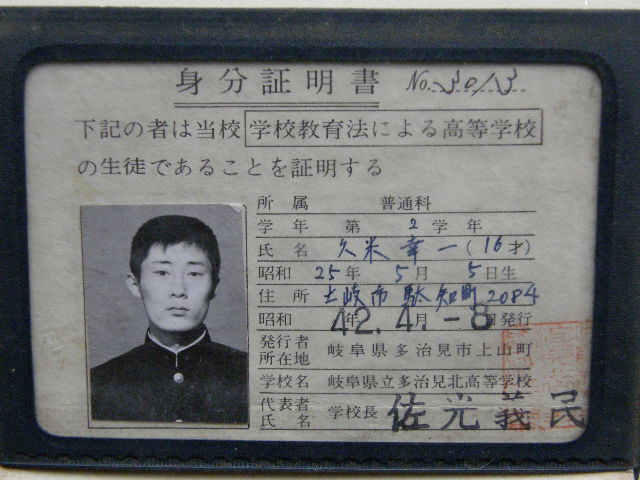 身分証明書 No. 3013
下記の者は当校 学校教育法による高等学校
の生徒であることを証明する
所属 普通科
学年 第 2 学年
氏名 久米幸一 (16才)
昭和 25年 5月 5日生
住所 土岐市駄知町2084
昭和 42年 4月 -8日発行
発行者所在地 岐阜県多治見市上山町
学校名 岐阜県立多治見北高等学校
代表者氏名 学校長 佐光義民